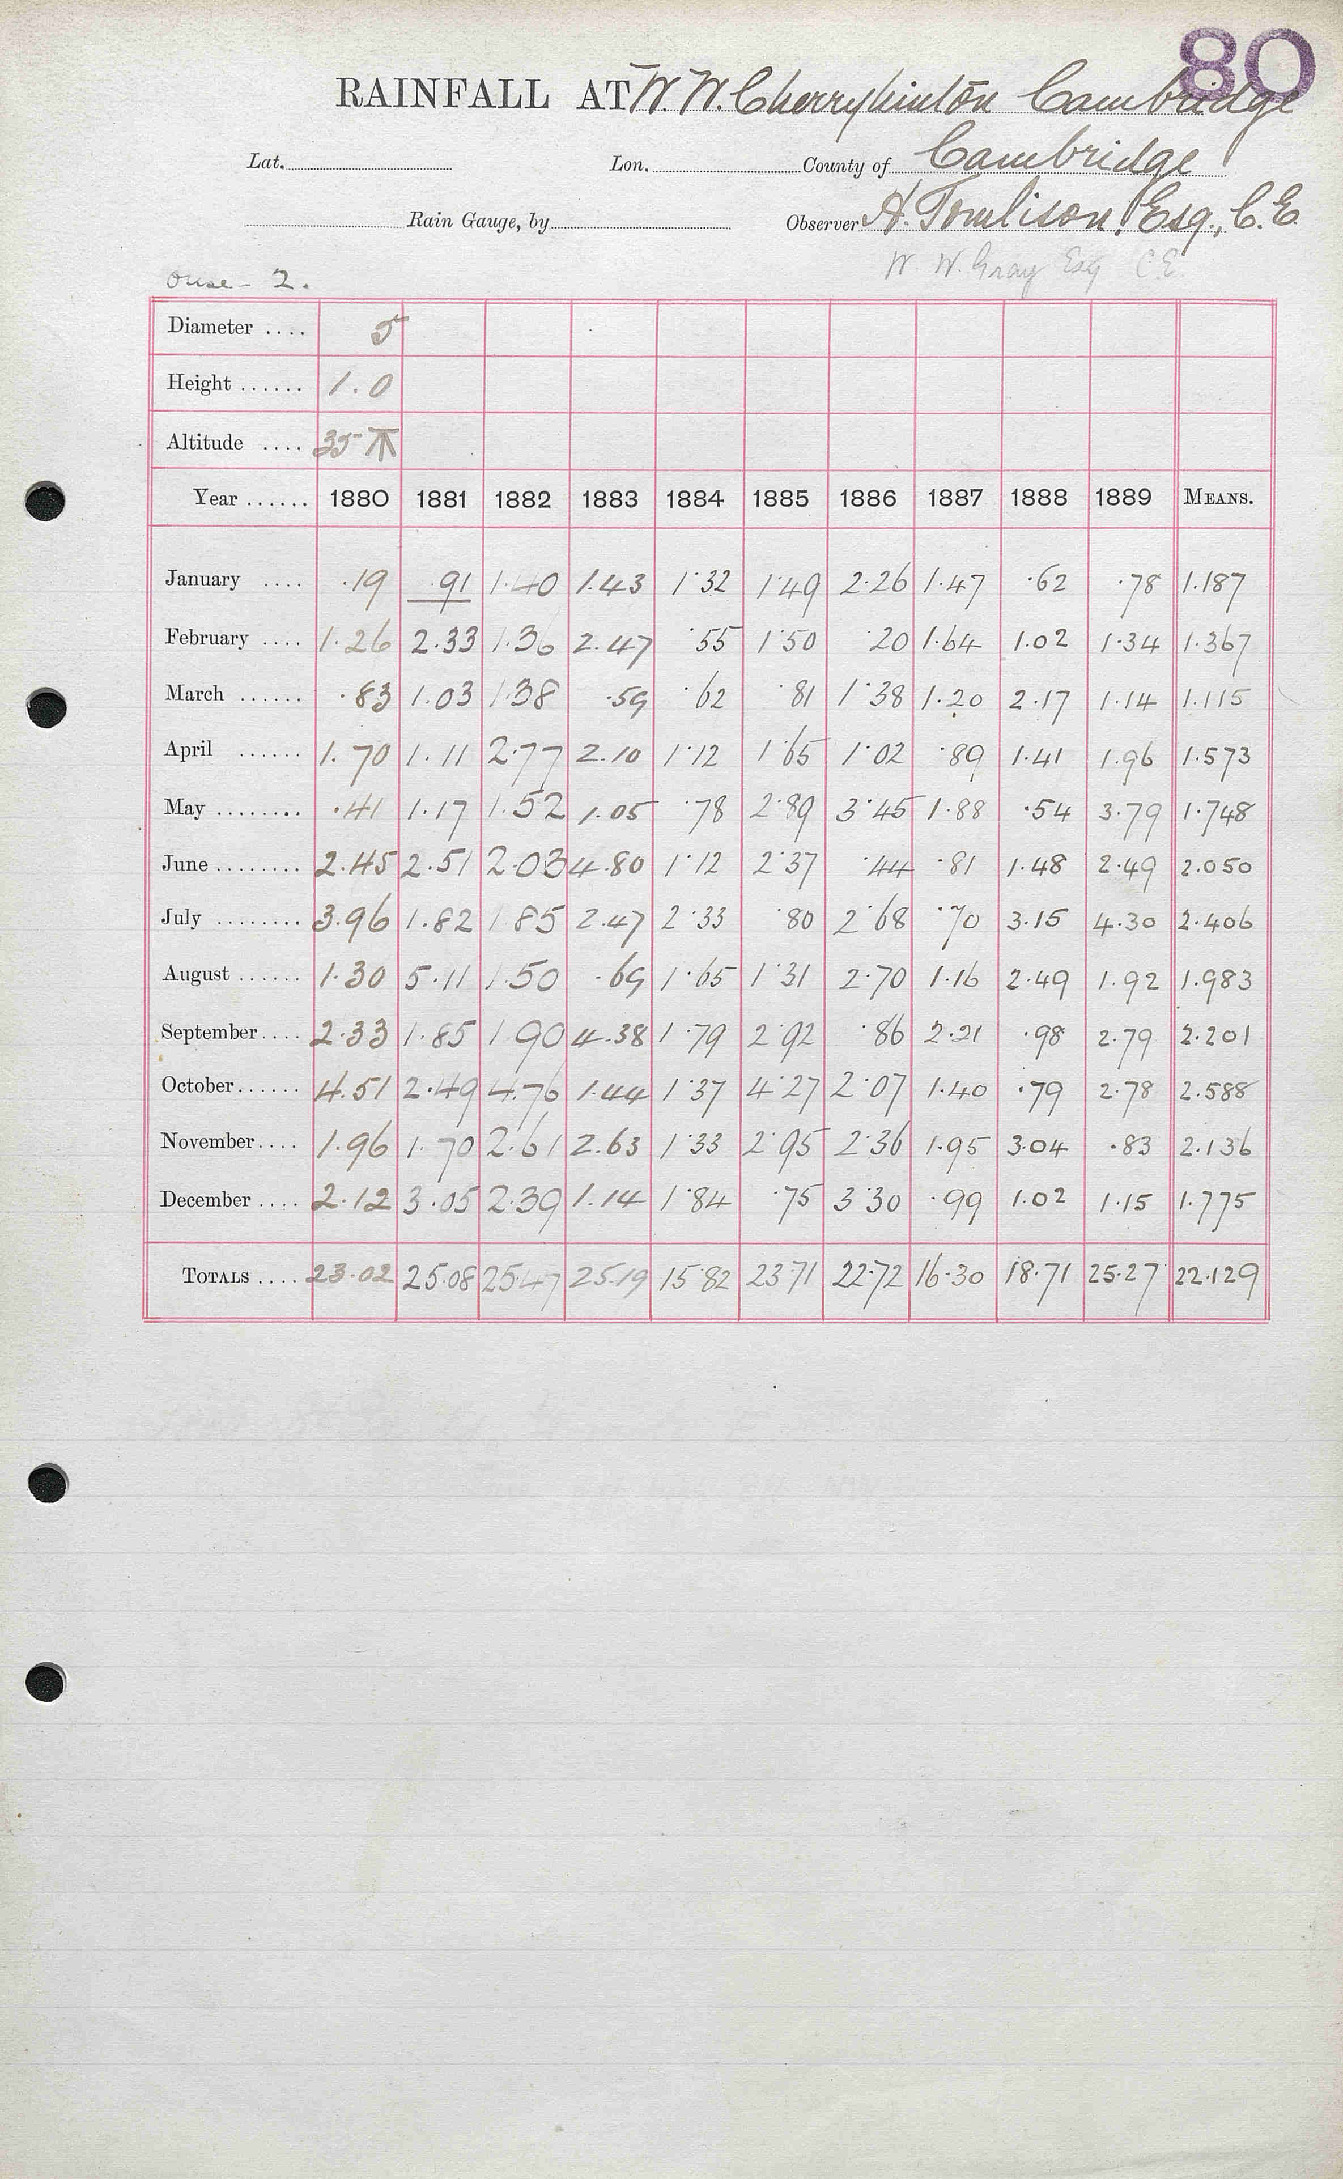 80
RAINFALL AT W. W. Cherryhinton Cambridge
Lat. Lon. County of Cambridge
Rain Gauge, by Observer A. Tomlison, Esq., C.E.
W. W. Gray Esq C.E.
Ouse - 2.
Diameter .... 5
Height ...... 1.0
Altitude .... 35
Year ...... 1880 1881 1882 1883 1884 1885 1886 1887 1888 1889 MEANS.
January .... .19 .91 1.40 1.43 1.32 1.49 2.26 1.47 .62 .78 1.187
February .... 1.26 2.33 1.36 2.47 .55 1.50 .20 1.64 1.02 1.34 1.367
March ...... .83 1.03 1.38 .59 .62 .81 1.38 1.20 2.17 1.14 1.115
April ...... 1.70 1.11 2.77 2.10 1.12 1.65 1.02 .89 1.41 1.96 1.573
May ........ .41 1.17 1.52 1.05 .78 2.89 3.45 1.88 .54 3.79 1.748
June ........ 2.45 2.51 2.03 4.80 1.12 2.37 .44 .81 1.48 2.49 2.050
July ........ 3.96 1.82 1.85 2.47 2.33 .80 2.68 .70 3.15 4.30 2.406
August ...... 1.30 5.11 1.50 .69 1.65 1.31 2.70 1.16 2.49 1.92 1.983
September .... 2.33 1.85 1.90 4.38 1.79 2.92 .86 2.21 .98 2.79 2.201
October ...... 4.51 2.49 4.76 1.44 1.37 4.27 2.07 1.40 .79 2.78 2.588
November .... 1.96 1.70 2.61 2.63 1.33 2.95 2.36 1.95 3.04 .83 2.136
December .... 2.12 3.05 2.39 1.14 1.84 .75 3.30 .99 1.02 1.15 1.775
TOTALS .... 23.02 25.08 25.47 25.19 15.82 23.71 22.72 16.30 18.71 25.27 22.129